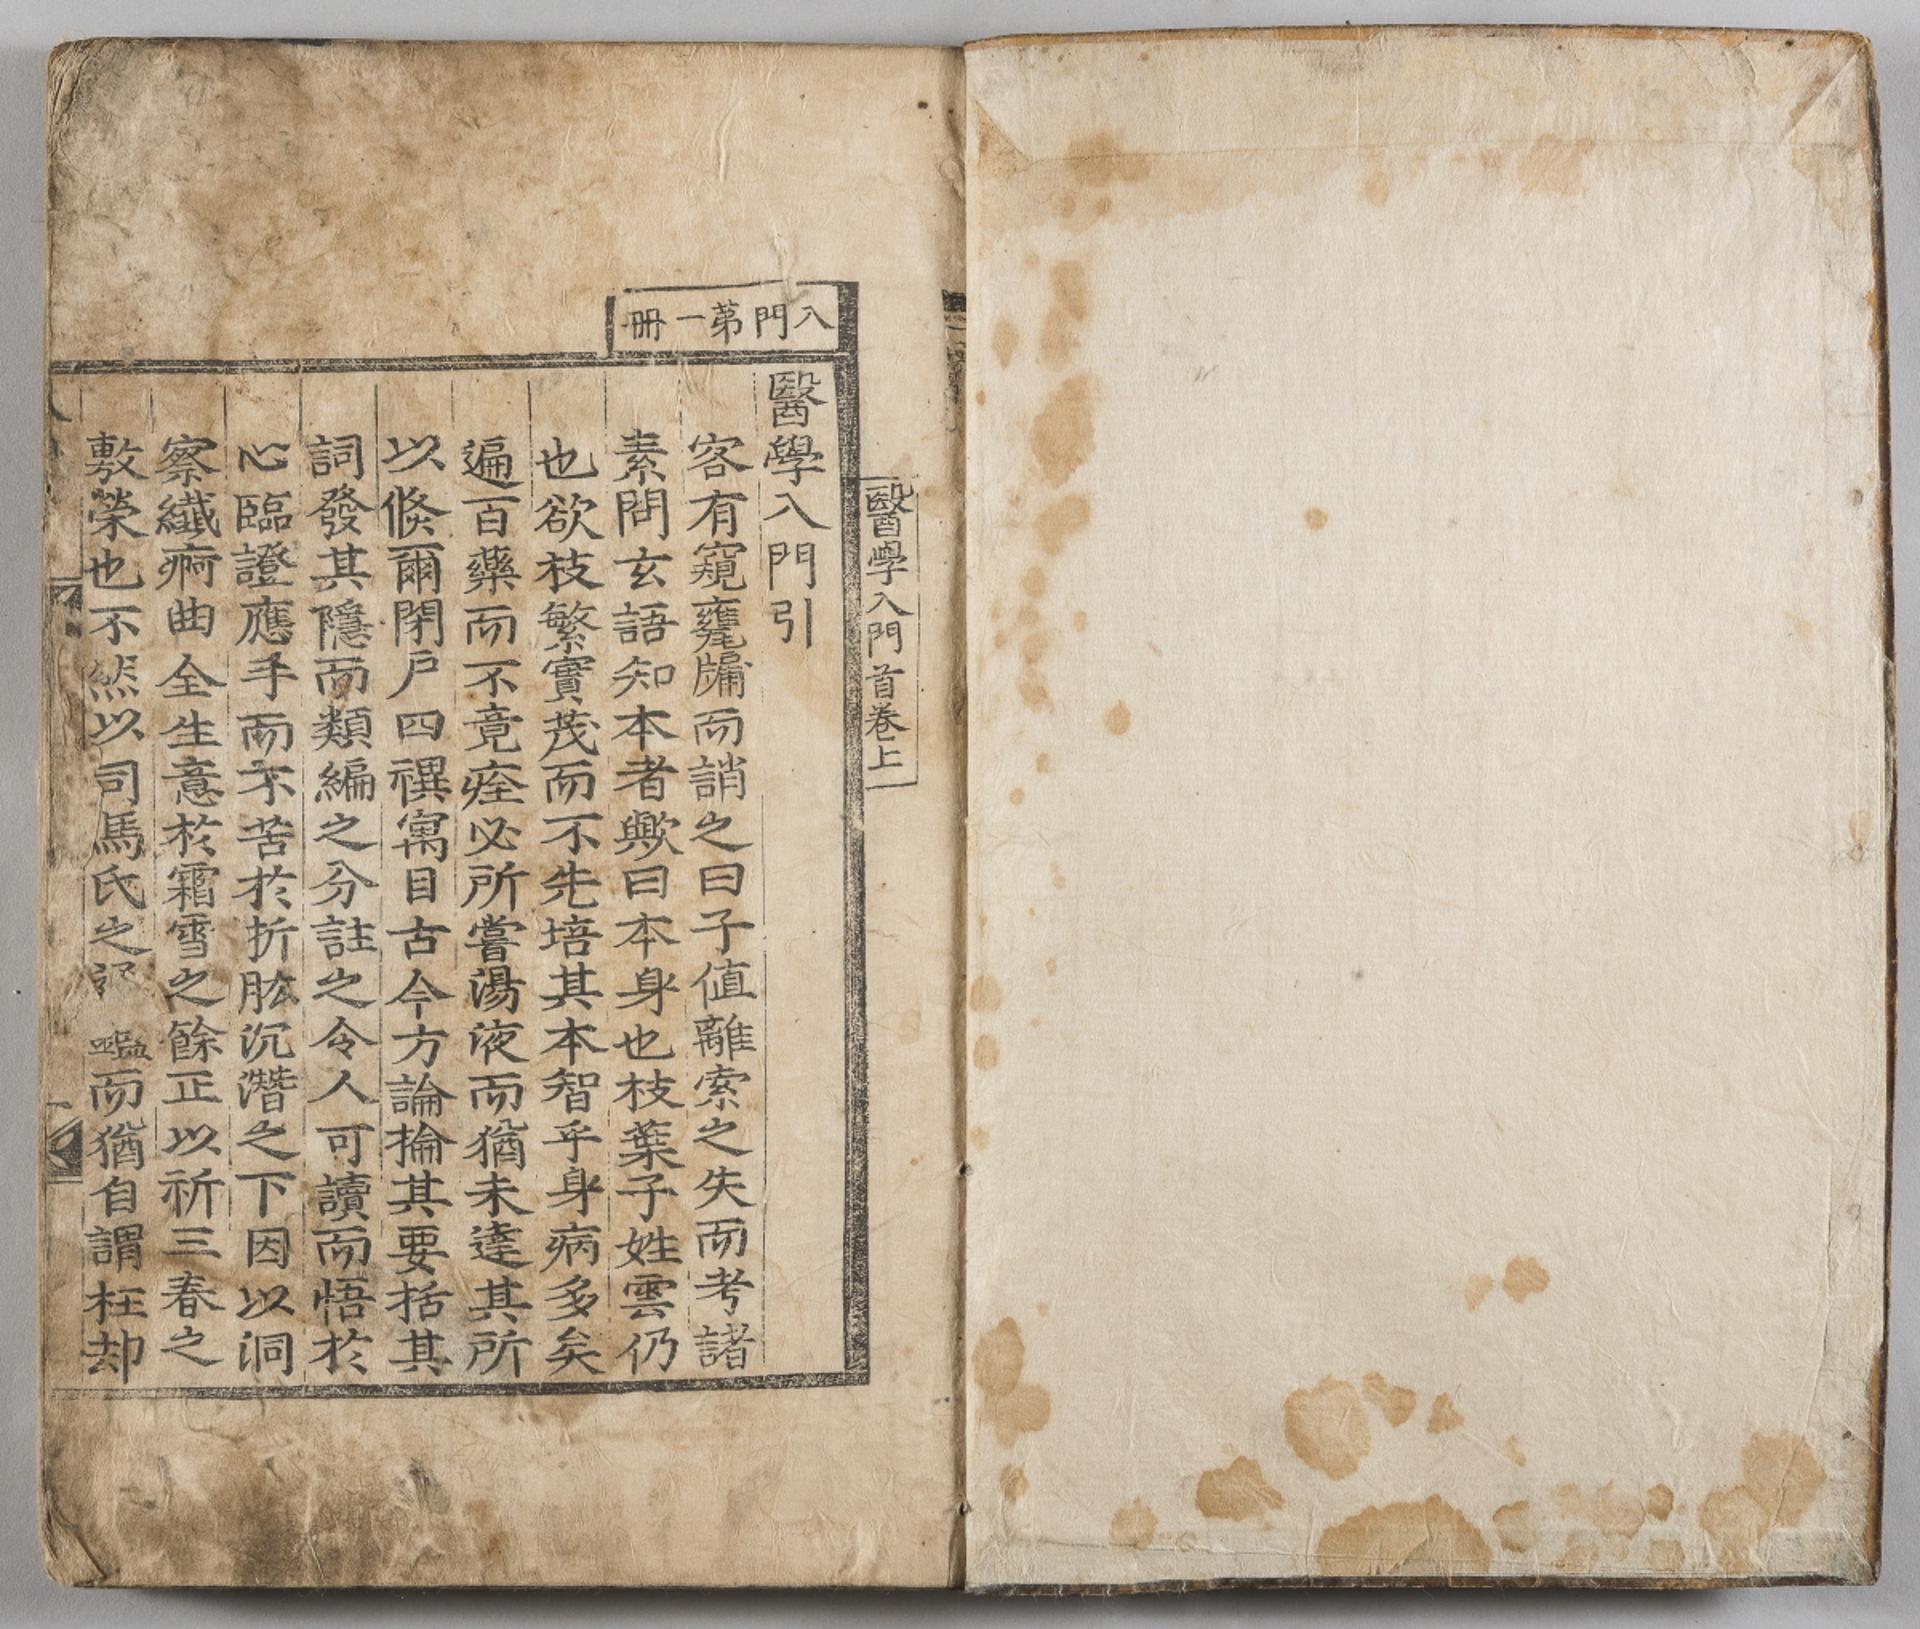 入門苐一冊
醫學入門首卷上
醫學入門引
客有窺甕牖而誚之曰子值離索之失而考諸
素問玄語知本者歟曰本身也枝葉子姓雲仍
也欲枝繁實茂而不先培其本智乎身病多矣
遍百藥而不竟痊必所嘗湯液而猶未達其所
以倐爾閉戶四禩寓目古今方論掄其要括其
詞發其隱而類編之分註之令人可讀而悟於
心臨證應手而不苦於折肱沉潛之下因以洞
察纖痾曲全生意於霜雪之餘正以祈三春之
敷榮也不然以司馬氏之 而猶自謂枉却